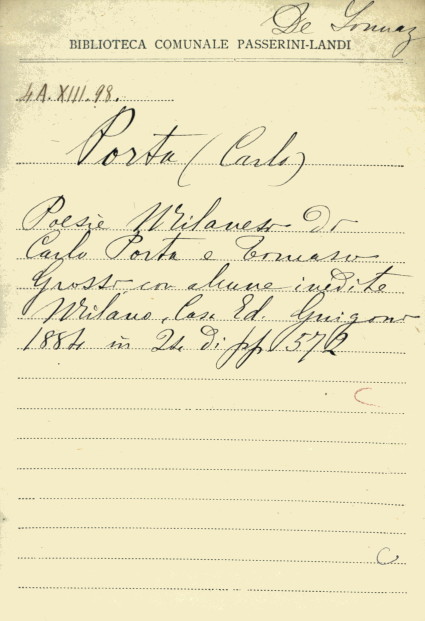 De Sonnaz
BIBLIOTECA COMUNALE PASSERINI-LANDI
4A.XIII.98.
Porta (Carlo)
Poesie Milanesi di
Carlo Porta e Tomaso
Grossi con alcune inedite
Milano, Casa Ed. Guigoni
1884 in 24. di pp. 572